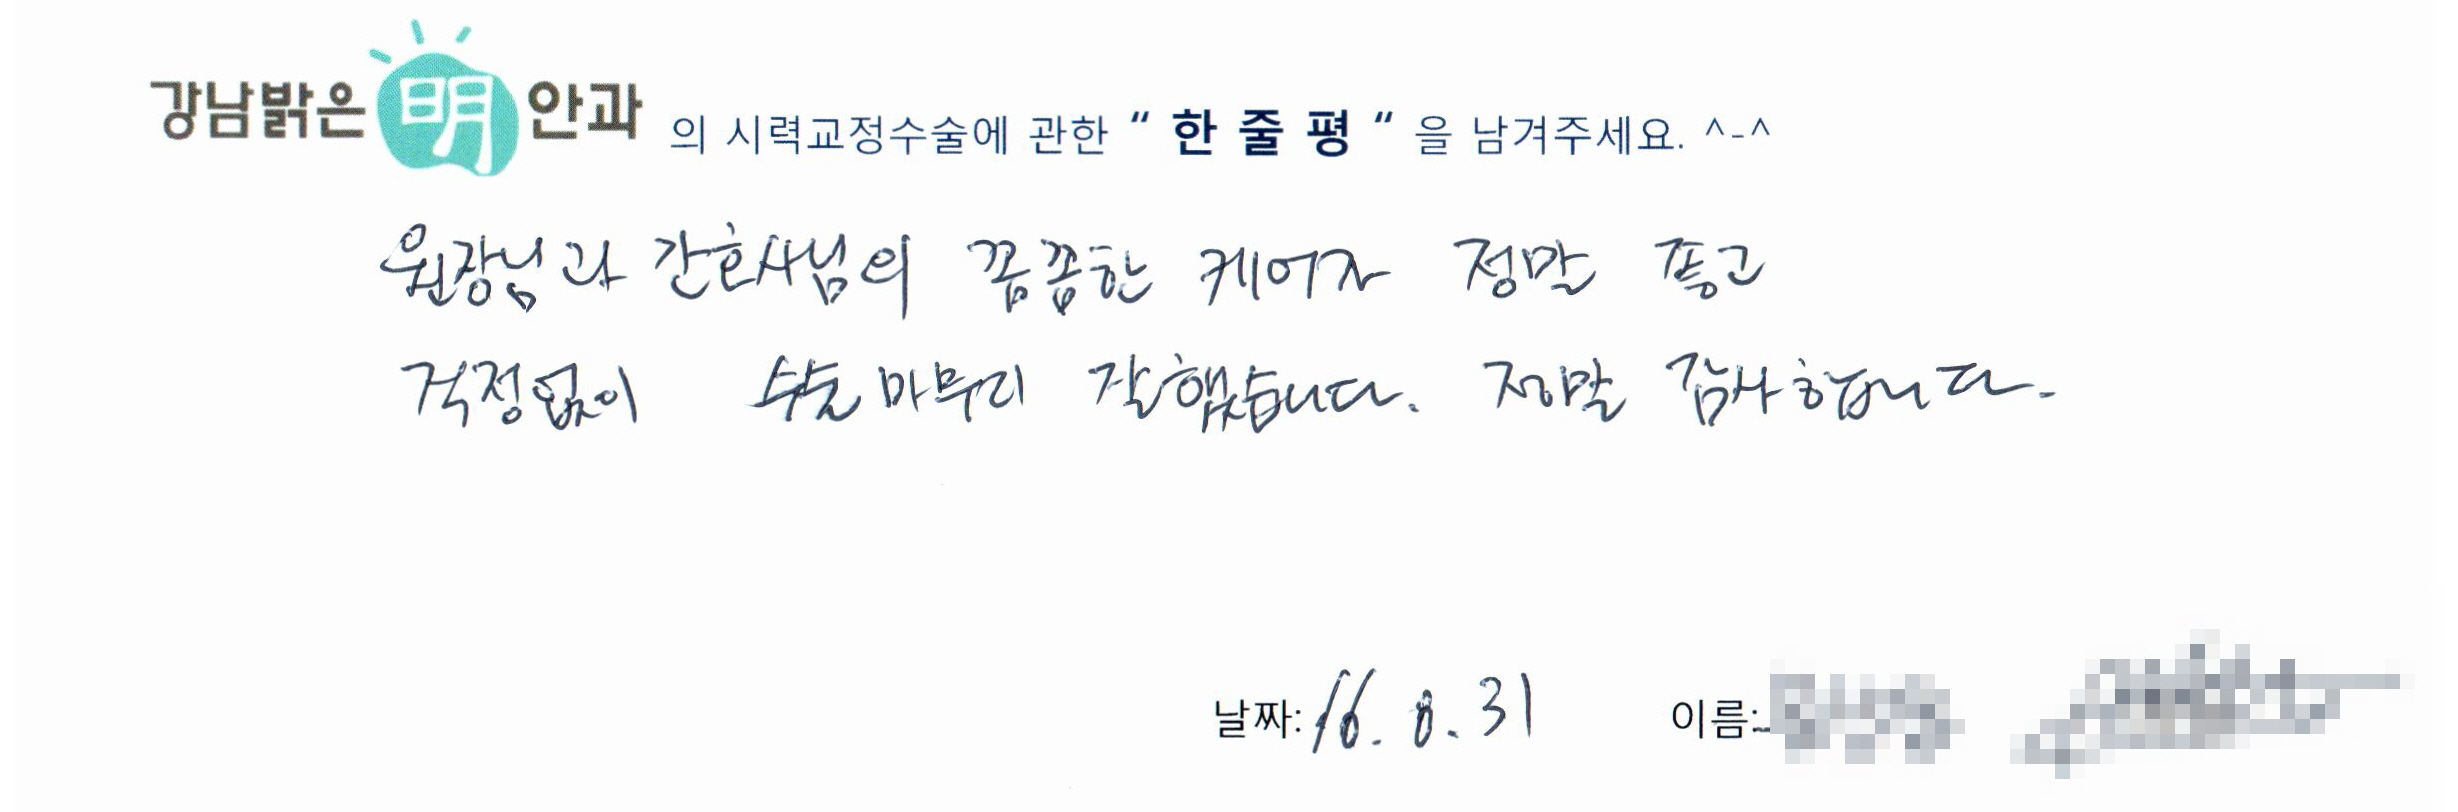 강남밝은 明 안과 의 시력교정수술에 관한 " 한 줄 평 " 을 남겨주세요. ^-^
원장님과 간호사님의 꼼꼼한 케어가 정말 좋고
걱정없이 수술 마무리 잘했습니다. 정말 감사합니다.
날짜: 16. 8. 31 이름: